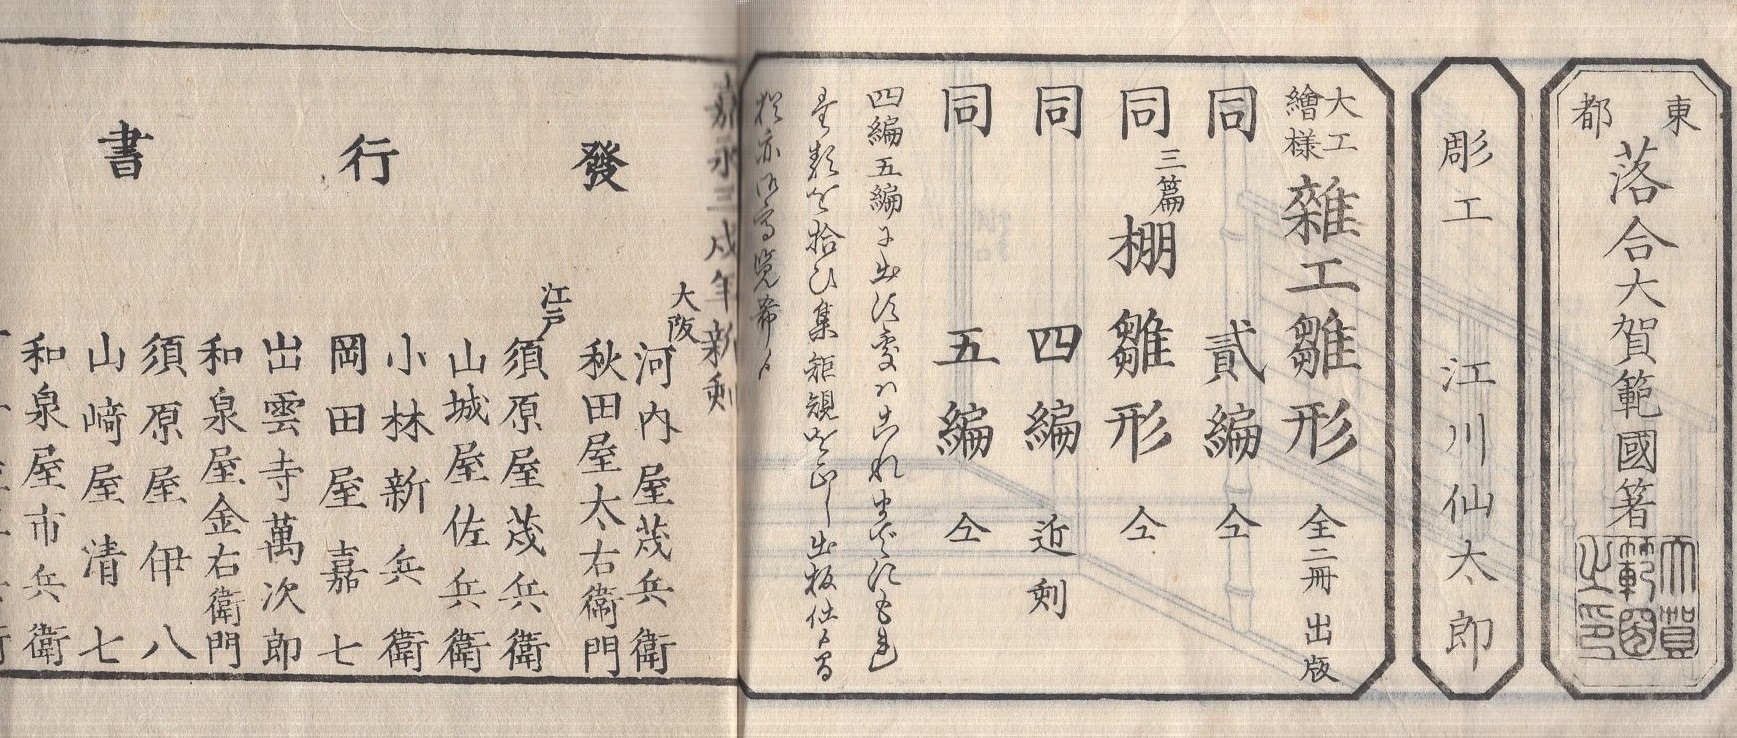 東都
落合大賀範國著
大賀範國之印
彫工 江川仙太郎
大工繪様 雜工雛形 全二冊 出版
同 貳編 仝
同 三篇 棚雛形 仝
同 四編 近刻
同 五編 仝
四編五編
拾ひ集
嘉永三戌年新刻
發行書
大阪
河内屋茂兵衛
秋田屋太右衛門
江戸
須原屋茂兵衛
山城屋佐兵衛
小林新兵衛
岡田屋嘉七
出雲寺萬次郎
和泉屋金右衛門
須原屋伊八
山﨑屋清七
和泉屋市兵衛